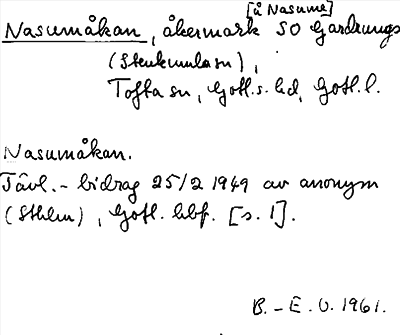 [å Nasume]
Nasumåkan, åkermark SO Gardrungs
(Stenkumla sn),
Tofta sn, Gotl. s. hd, Gotl. l.
Nasumåkan.
Tävl.-bidrag 25/2 1949 av anonym
(Sthlm), Gotl. hbf. [s. 1].
B.-E. O. 1961.